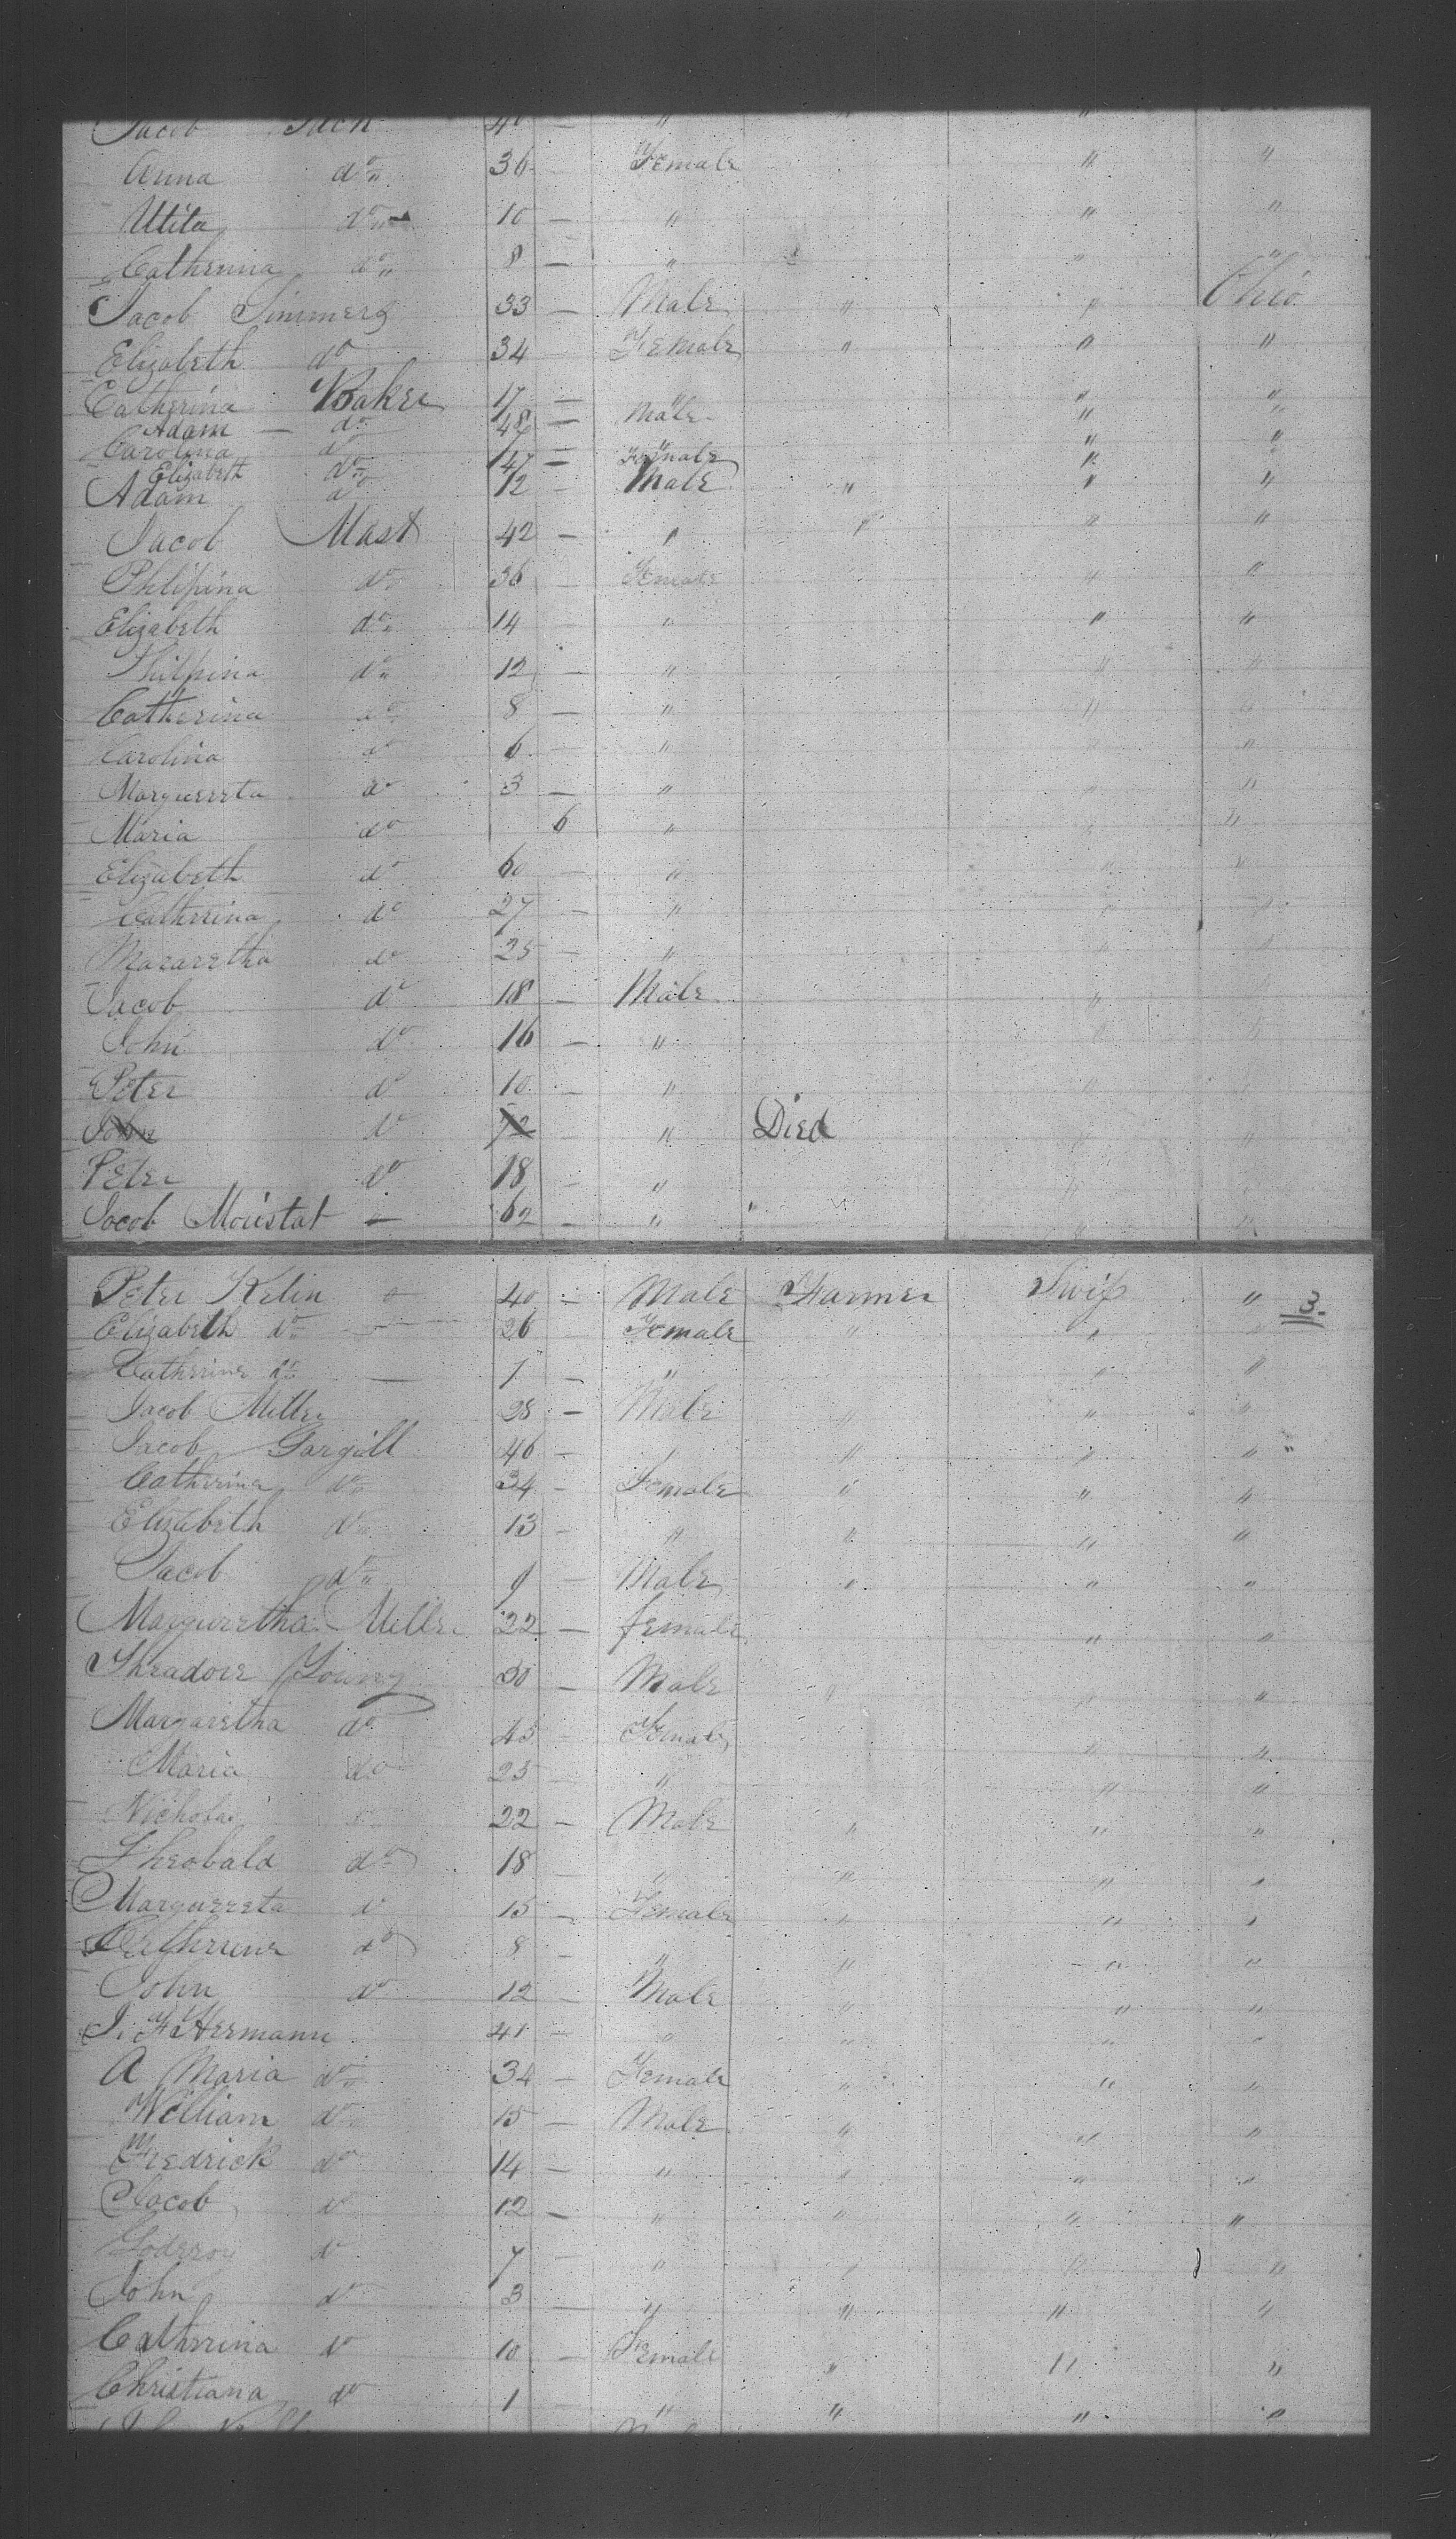 Jacob 40 — "
Anna do 36 Female " "
Utila do 10 — " " "
Catherina do 8 — " " "
Jacob Simmerg 33 — Male " " Ohio
Elizabeth do 34 Female " " "
Catherina Baker 17 — " " "
Adam — do 48 — Male " "
Carolina do " "
Elizabeth do 47 — Female "
Adam do 12 — Male " " "
Jacob Mast 42 — " " " "
Philipina do 36 Female " "
Elizabeth do 14 — " " "
Philpina do 12 — " " "
Catherina do 8 — " " "
Carolina do 6 — " " "
Marguereta do 3 — " " "
Maria do 6 " " "
Elizabeth do 60 — " " "
Catherina do 27 — " " "
Mararetha do 25 — " " "
Jacob do 18 — Male " "
John do 16 — " " "
Peter do 10 — " " "
John do 72 " Died " "
Peter do 18 — " " "
Jacob Moustat — 62 — " " " "
Peter Kelin 40 — Male Farmer Swiss " 3
Elizabeth do — 26 Female " " "
Catherine do — 1 — " " "
Jacob Miller 28 — Male " " "
Jacob Gargill 46 — " " " "
Catherine do 34 — Female " " "
Elizabeth do 13 — " " " "
Jacob do 9 — Male " " "
Marguertha Miller 22 — female " "
Theadore Young 50 — Male " " "
Margaretha do 45 — Female " "
Maria do 23 — " " "
Nicholas do 22 — Male " " "
Theobald do 18 — " " " "
Marguereta do 15 — Female " " "
Catherine do 8 — " " " "
John do 12 — Male " " "
J. F. Hermann 41 — " " " "
A Maria do 34 — Female " " "
William do 15 — Male " " "
Fredrick do 14 — " " " "
Jacob do 12 — " " " "
Godfroy do 7 — " " " "
John do 3 — " " " "
Catherina do 10 — Female " " "
Christiana do 1 — " " " "